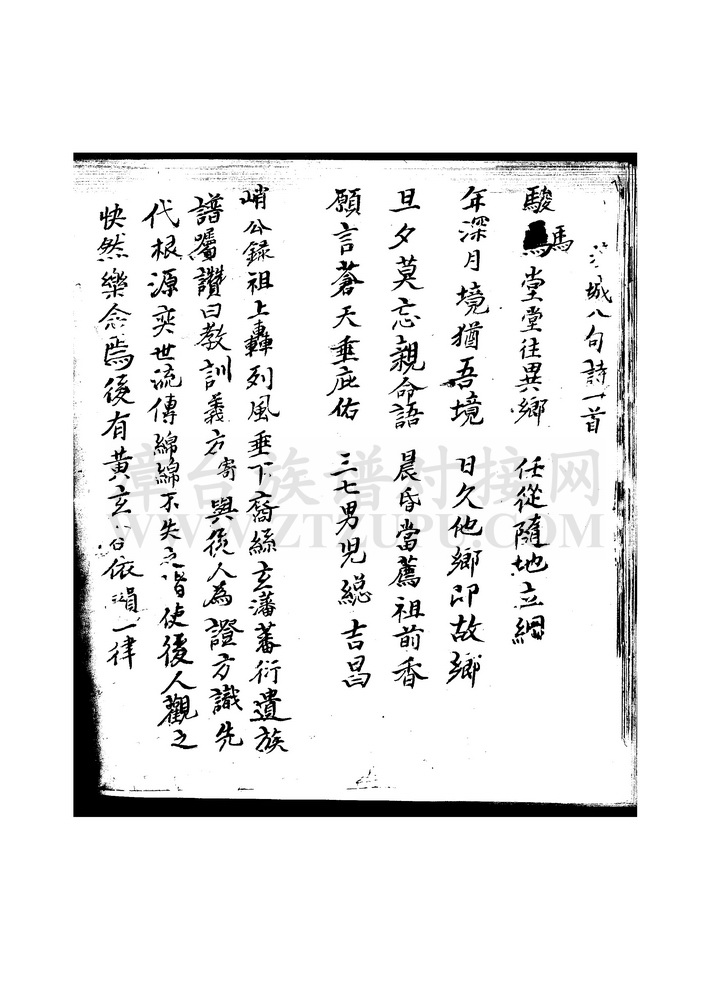 城八句詩一首
駿馬堂堂往異鄉 任從隨地立綱
年深月境猶吾境 日久他鄉即故鄉
旦夕莫忘親命語 晨昏當薦祖前香
願言蒼天垂庇佑 三七男兒總吉昌
峭公錄祖上轟列風垂下裔絲玄藩蕃衍遺族
譜囑讚曰教訓義方寄與後人為證方識先
代根源奕世流傳綿綿不失之皆使後人觀之
快然樂念焉後有黃玄 依 一律
章台族譜对接网
WWW.ZTZUPU.COM